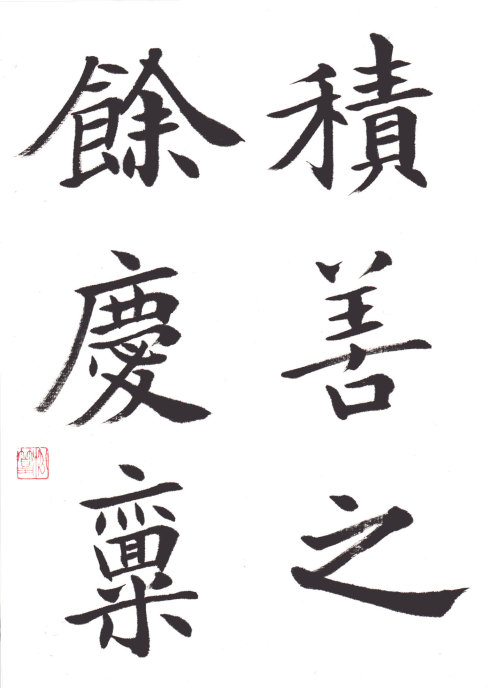 積善之
餘慶稟